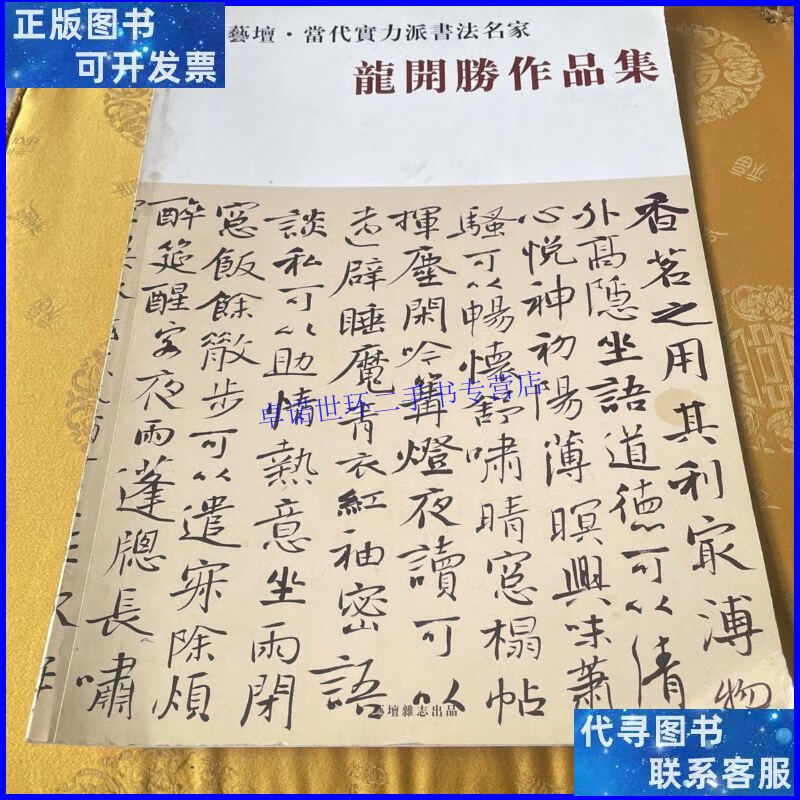 正版图书
可开发票
藝壇·當代實力派書法名家
龍開勝作品集
香茗之用其利最溥物
外高隱坐語道德可以清
心悅神初陽薄暝興味蕭
騷可以暢懷舒嘯晴窓榻帖
揮塵閑吟篝燈夜讀可以
遠辟睡魔青衣紅袖密語
談私可以助情熱意坐雨閉
窓飯餘散步可以遣寂除煩
醉筵醒客夜雨蓬牕長嘯
卓诺世环二手书专营店
藝壇雜志出品
代寻图书
联系客服